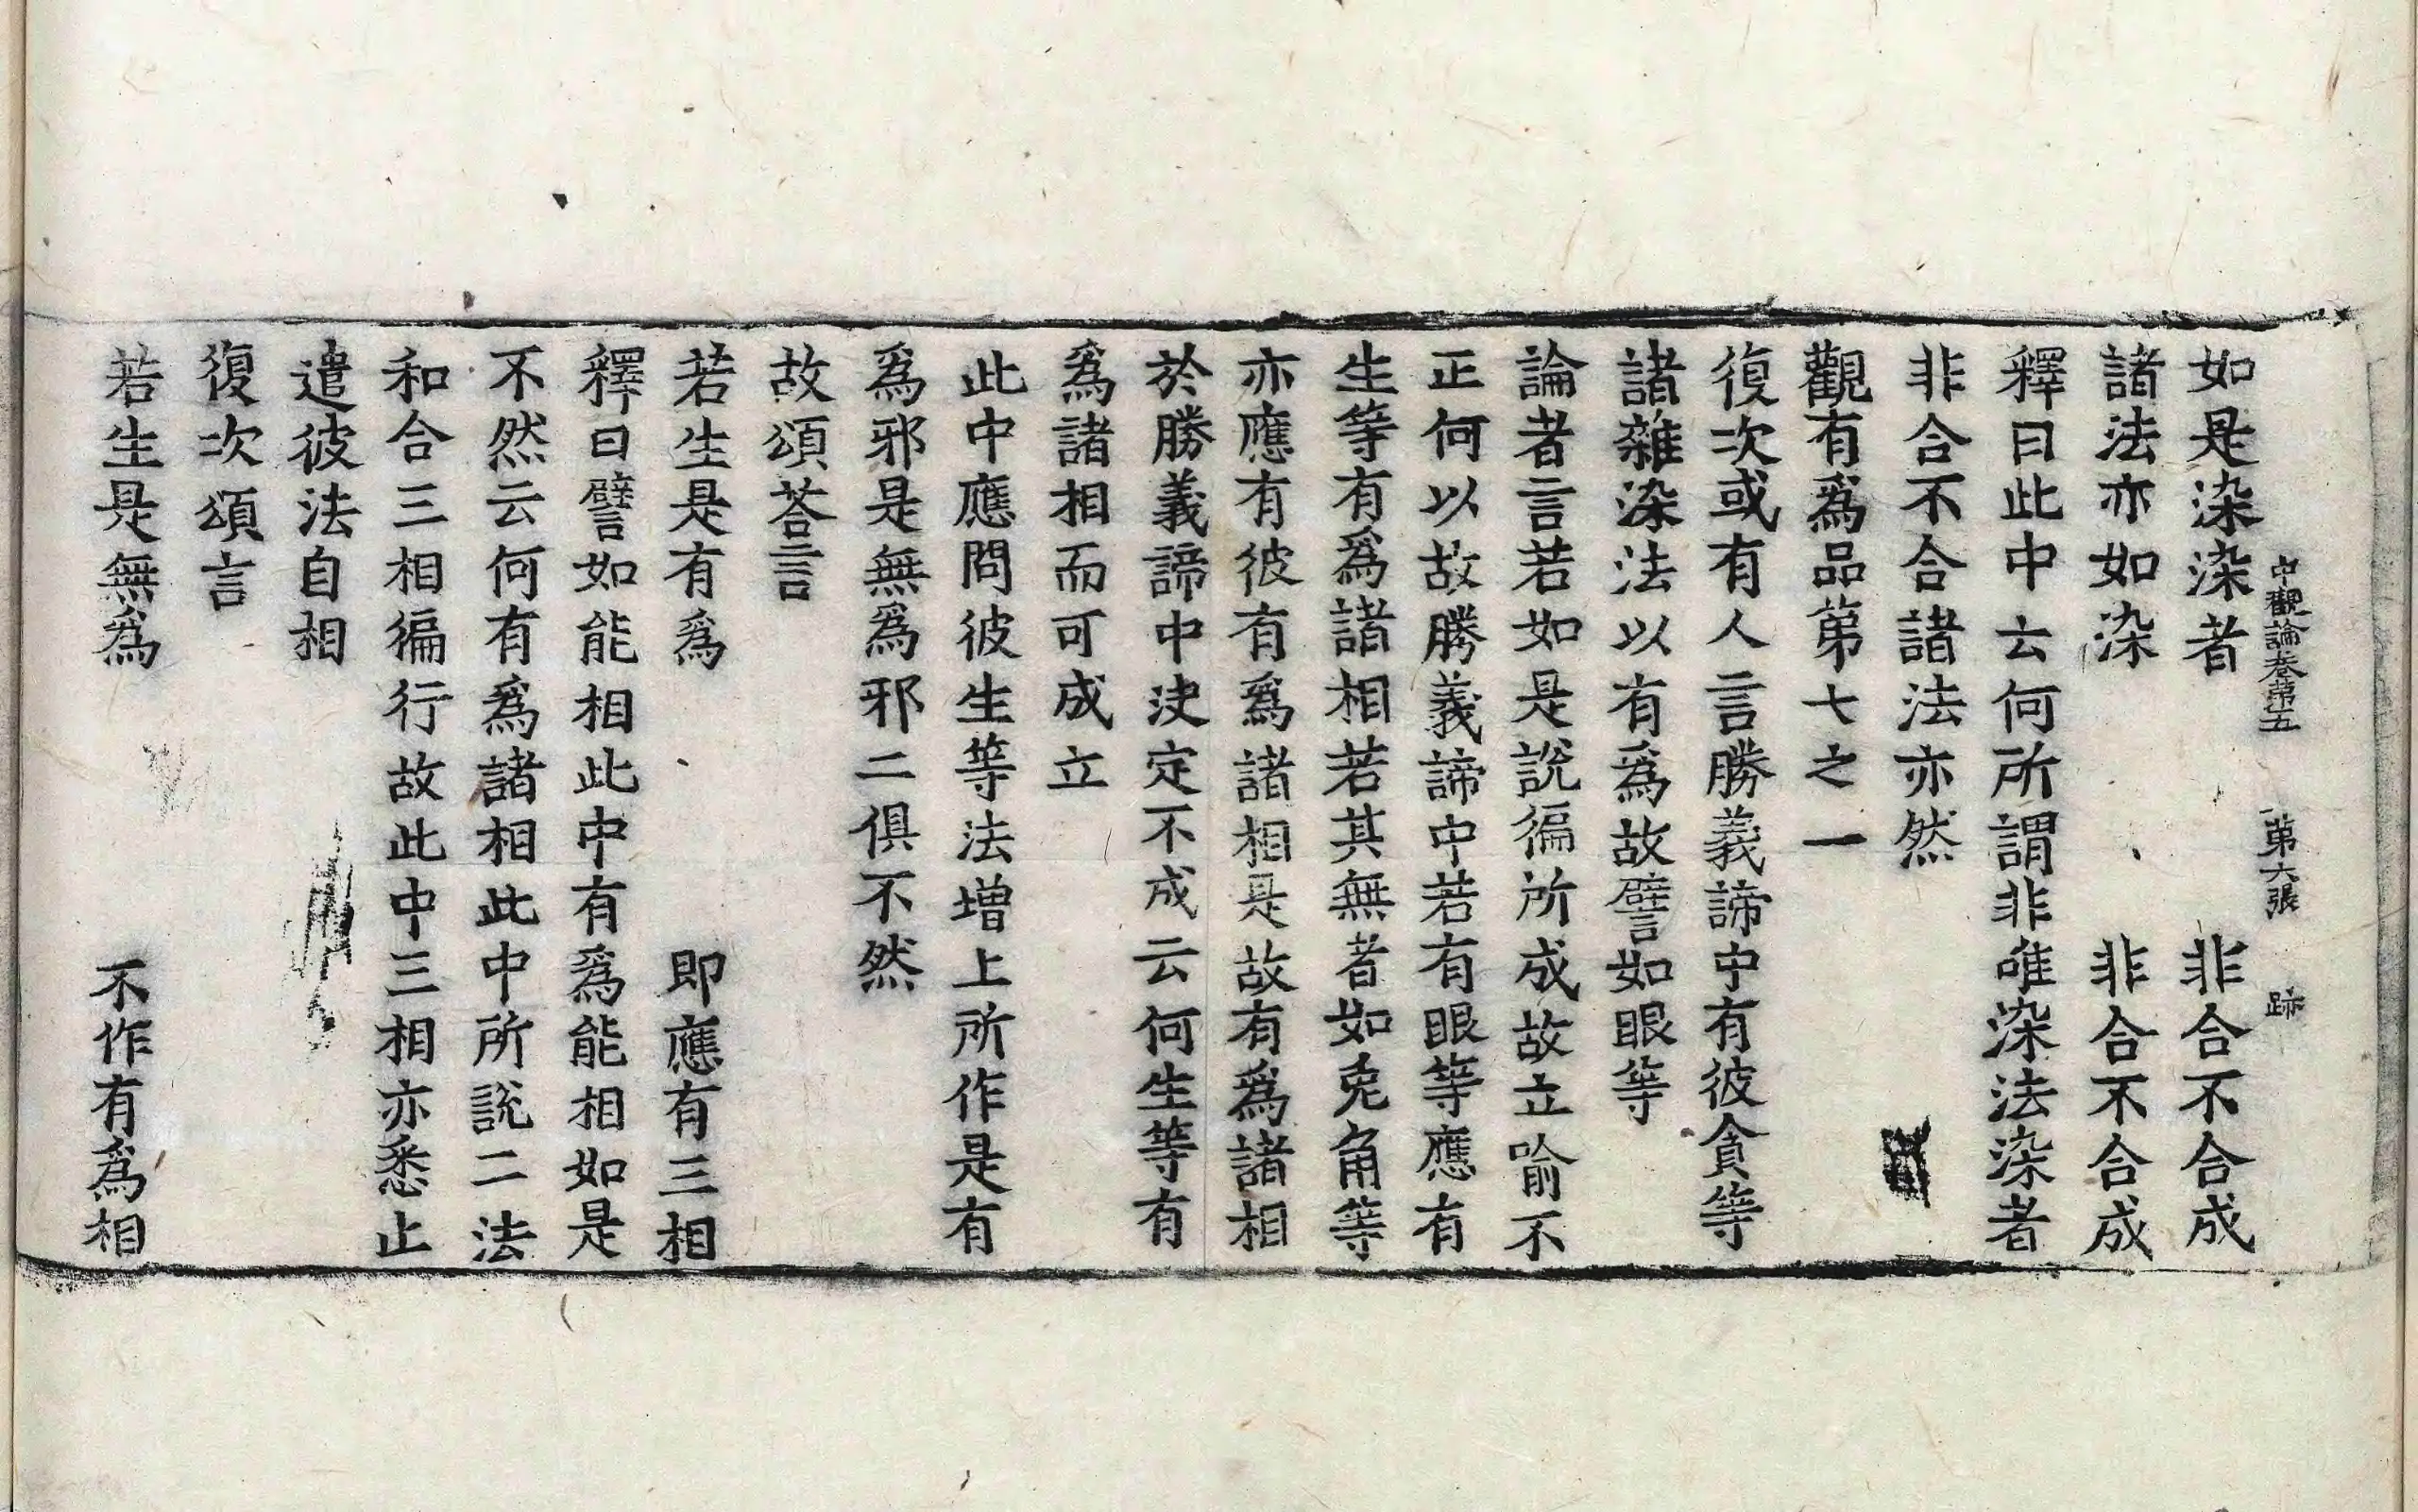 中觀論卷第五 第六張 跡
如是染染者 非合不合成
諸法亦如染 非合不合成
釋曰此中云何所謂非唯染法染者
非合不合諸法亦然
觀有爲品第七之一
復次或有人言勝義諦中有彼貪等
諸雜染法以有爲故譬如眼等
論者言若如是說徧所成故立喻不
正何以故勝義諦中若有眼等應有
生等有爲諸相若其無者如兔角等
亦應有彼有爲諸相是故有爲諸相
於勝義諦中決定不成云何生等有
爲諸相而可成立
此中應問彼生等法增上所作是有
爲邪是無爲邪二俱不然
故頌荅言
若生是有爲 即應有三相
釋曰譬如能相此中有爲能相如是
不然云何有爲諸相此中所說二法
和合三相徧行故此中三相亦悉止
遣彼法自相
復次頌言
若生是無爲 不作有爲相